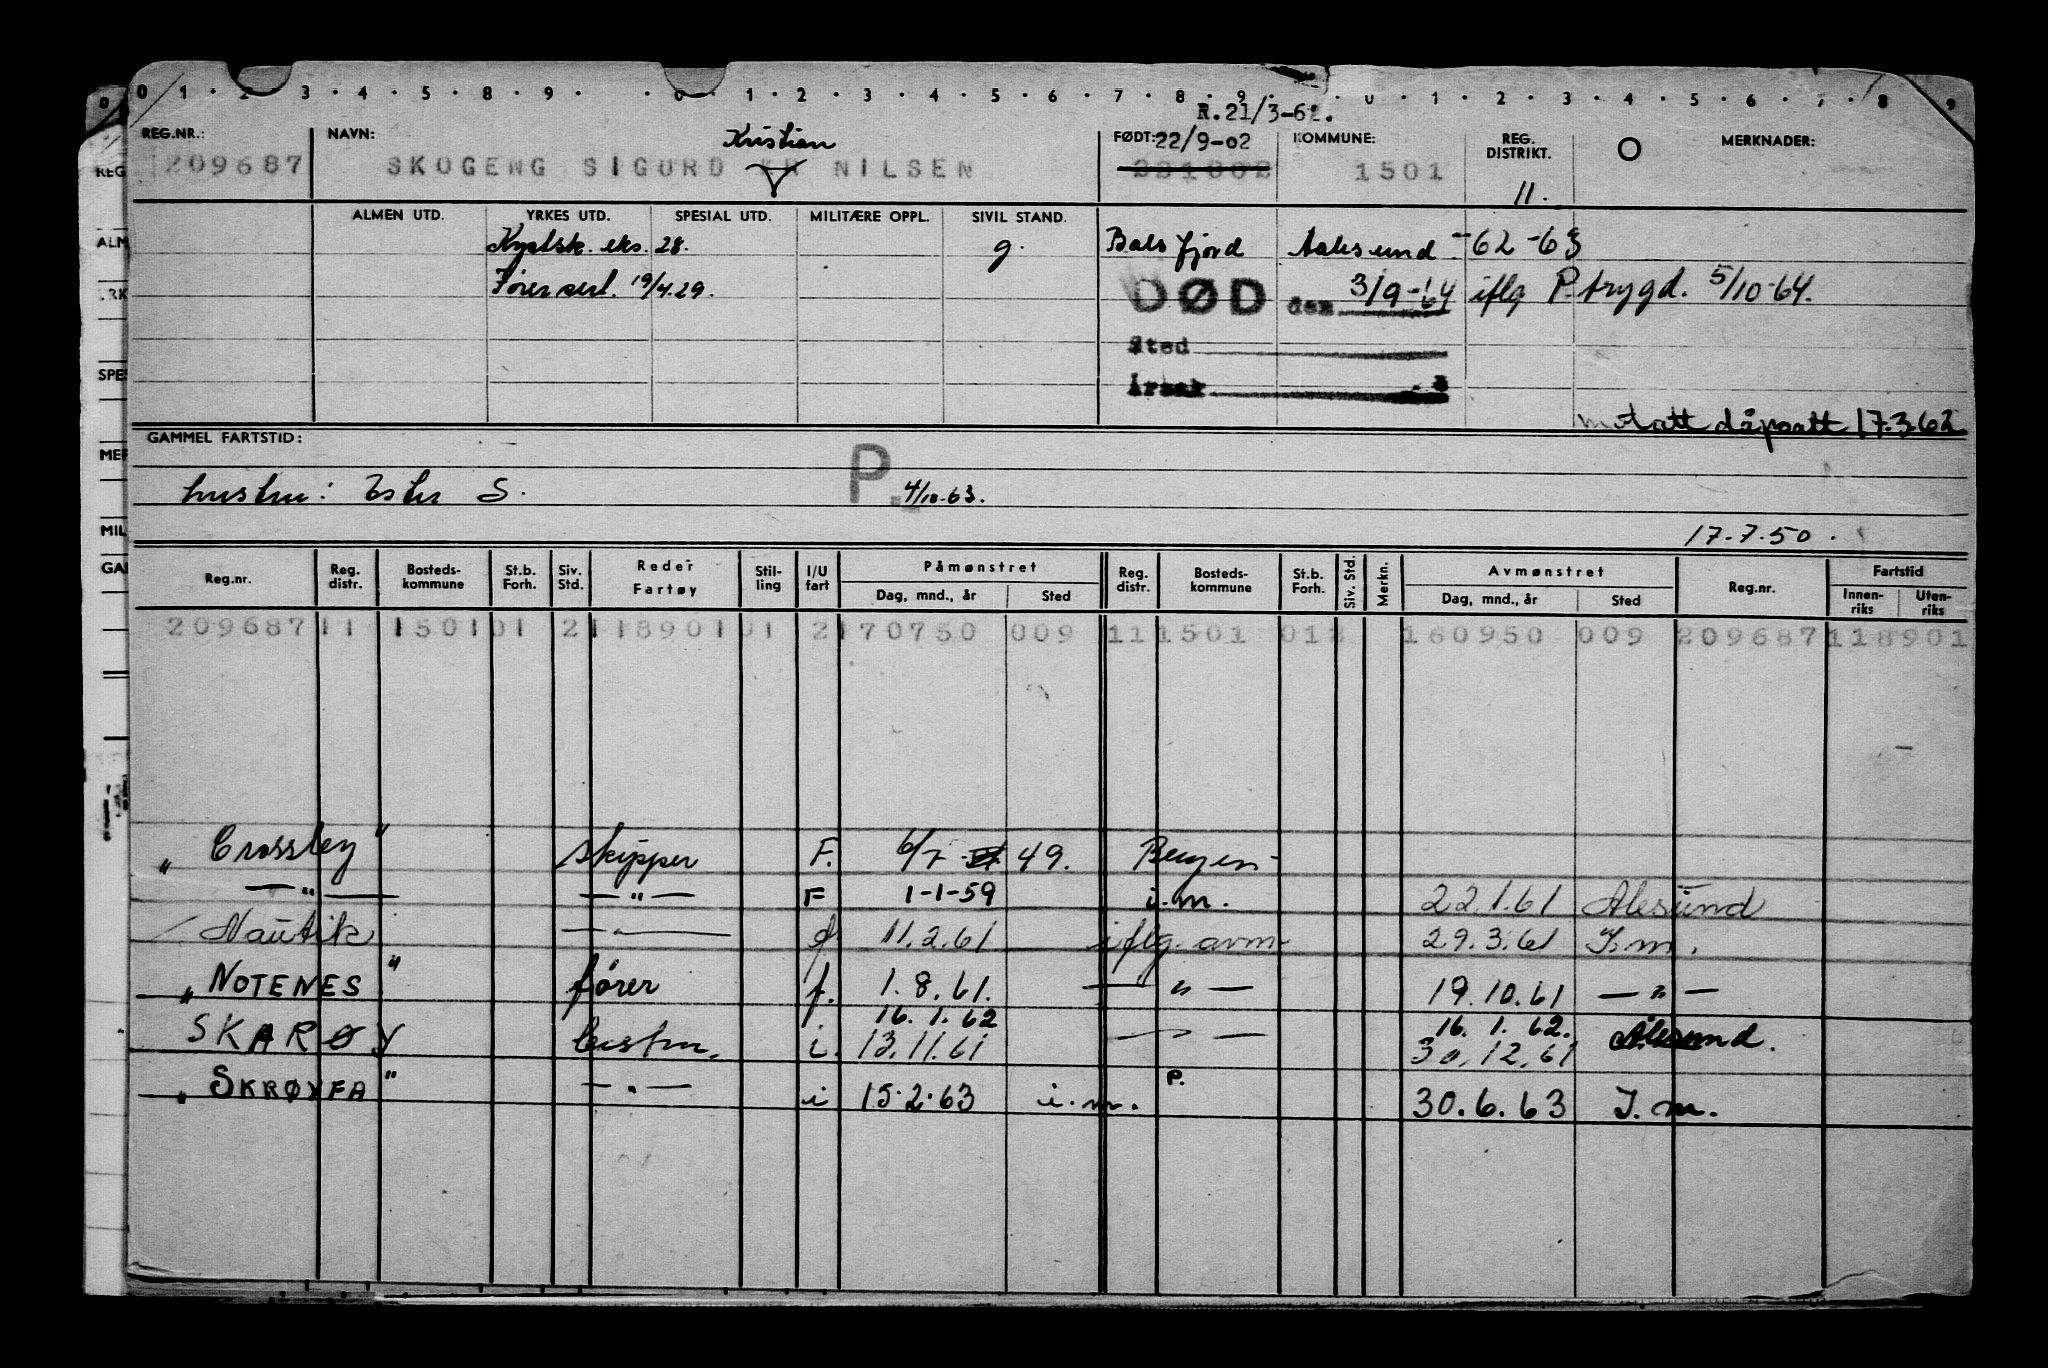 0 1 · 2 · 3 · 4 · 5 · 8 · 9 · · 0 · 1 · 2 · 3 · 4 · 5 · 6 · 7 · 8 · 9 · 0 · 1 · 2 · 3 · 4 · 5 · 6 · 7 · 8 · 9
R.21/3-62.
REG.NR.: NAVN: Kristian FØDT: 22/9-02 KOMMUNE: REG. DISTRIKT. O MERKNADER:
209687 SKOGENG SIGURD KR NILSEN 221002 1501 11.
ALMEN UTD. YRKES UTD. SPESIAL UTD. MILITÆRE OPPL. SIVIL STAND.
Kystsk. eks. 28. g. Balsfjord Aalesund -62-63
Førersert. 19/4.29. DØD den 3/9-'64 iflg P.trygd. 5/10-64.
Sted
Årsak
mottatt dåpsatt 17.3.62
GAMMEL FARTSTID:
P.
hustru: Ester S. 4/10-63.
17.7.50.
Reg.nr. Reg. distr. Bosteds-kommune St.b. Forh. Siv. Std. Reder Fartøy Stil-ling I/U fart Påmønstret Dag, mnd., år Sted Reg. distr. Bosteds-kommune St.b. Forh. Siv. Std. Merkn. Avmønstret Dag, mnd., år Sted Reg.nr. Fartstid Innen-riks Uten-riks
209687 11 1501 01 2 118901 01 2 170750 009 11 1501 012 160950 009 209687 118901
„Crossley" skipper F. 6/7 49. Bergen
—"— —"— F 1-1-59 i.m. 22.1.61 Ålesund
Nautik —"— f 11.2.61 iflg. avm. 29.3.61 I.m.
„NOTENES" fører f. 1.8.61. —"— 19.10.61 —"—
16.1.62 16.1.62.
SKARØY bestm. i. 13.11.61 —"— 30.12.61 Ålesund.
„SKRØYFA" —"— i 15.2.63 i.m. P. 30.6.63 I.m.